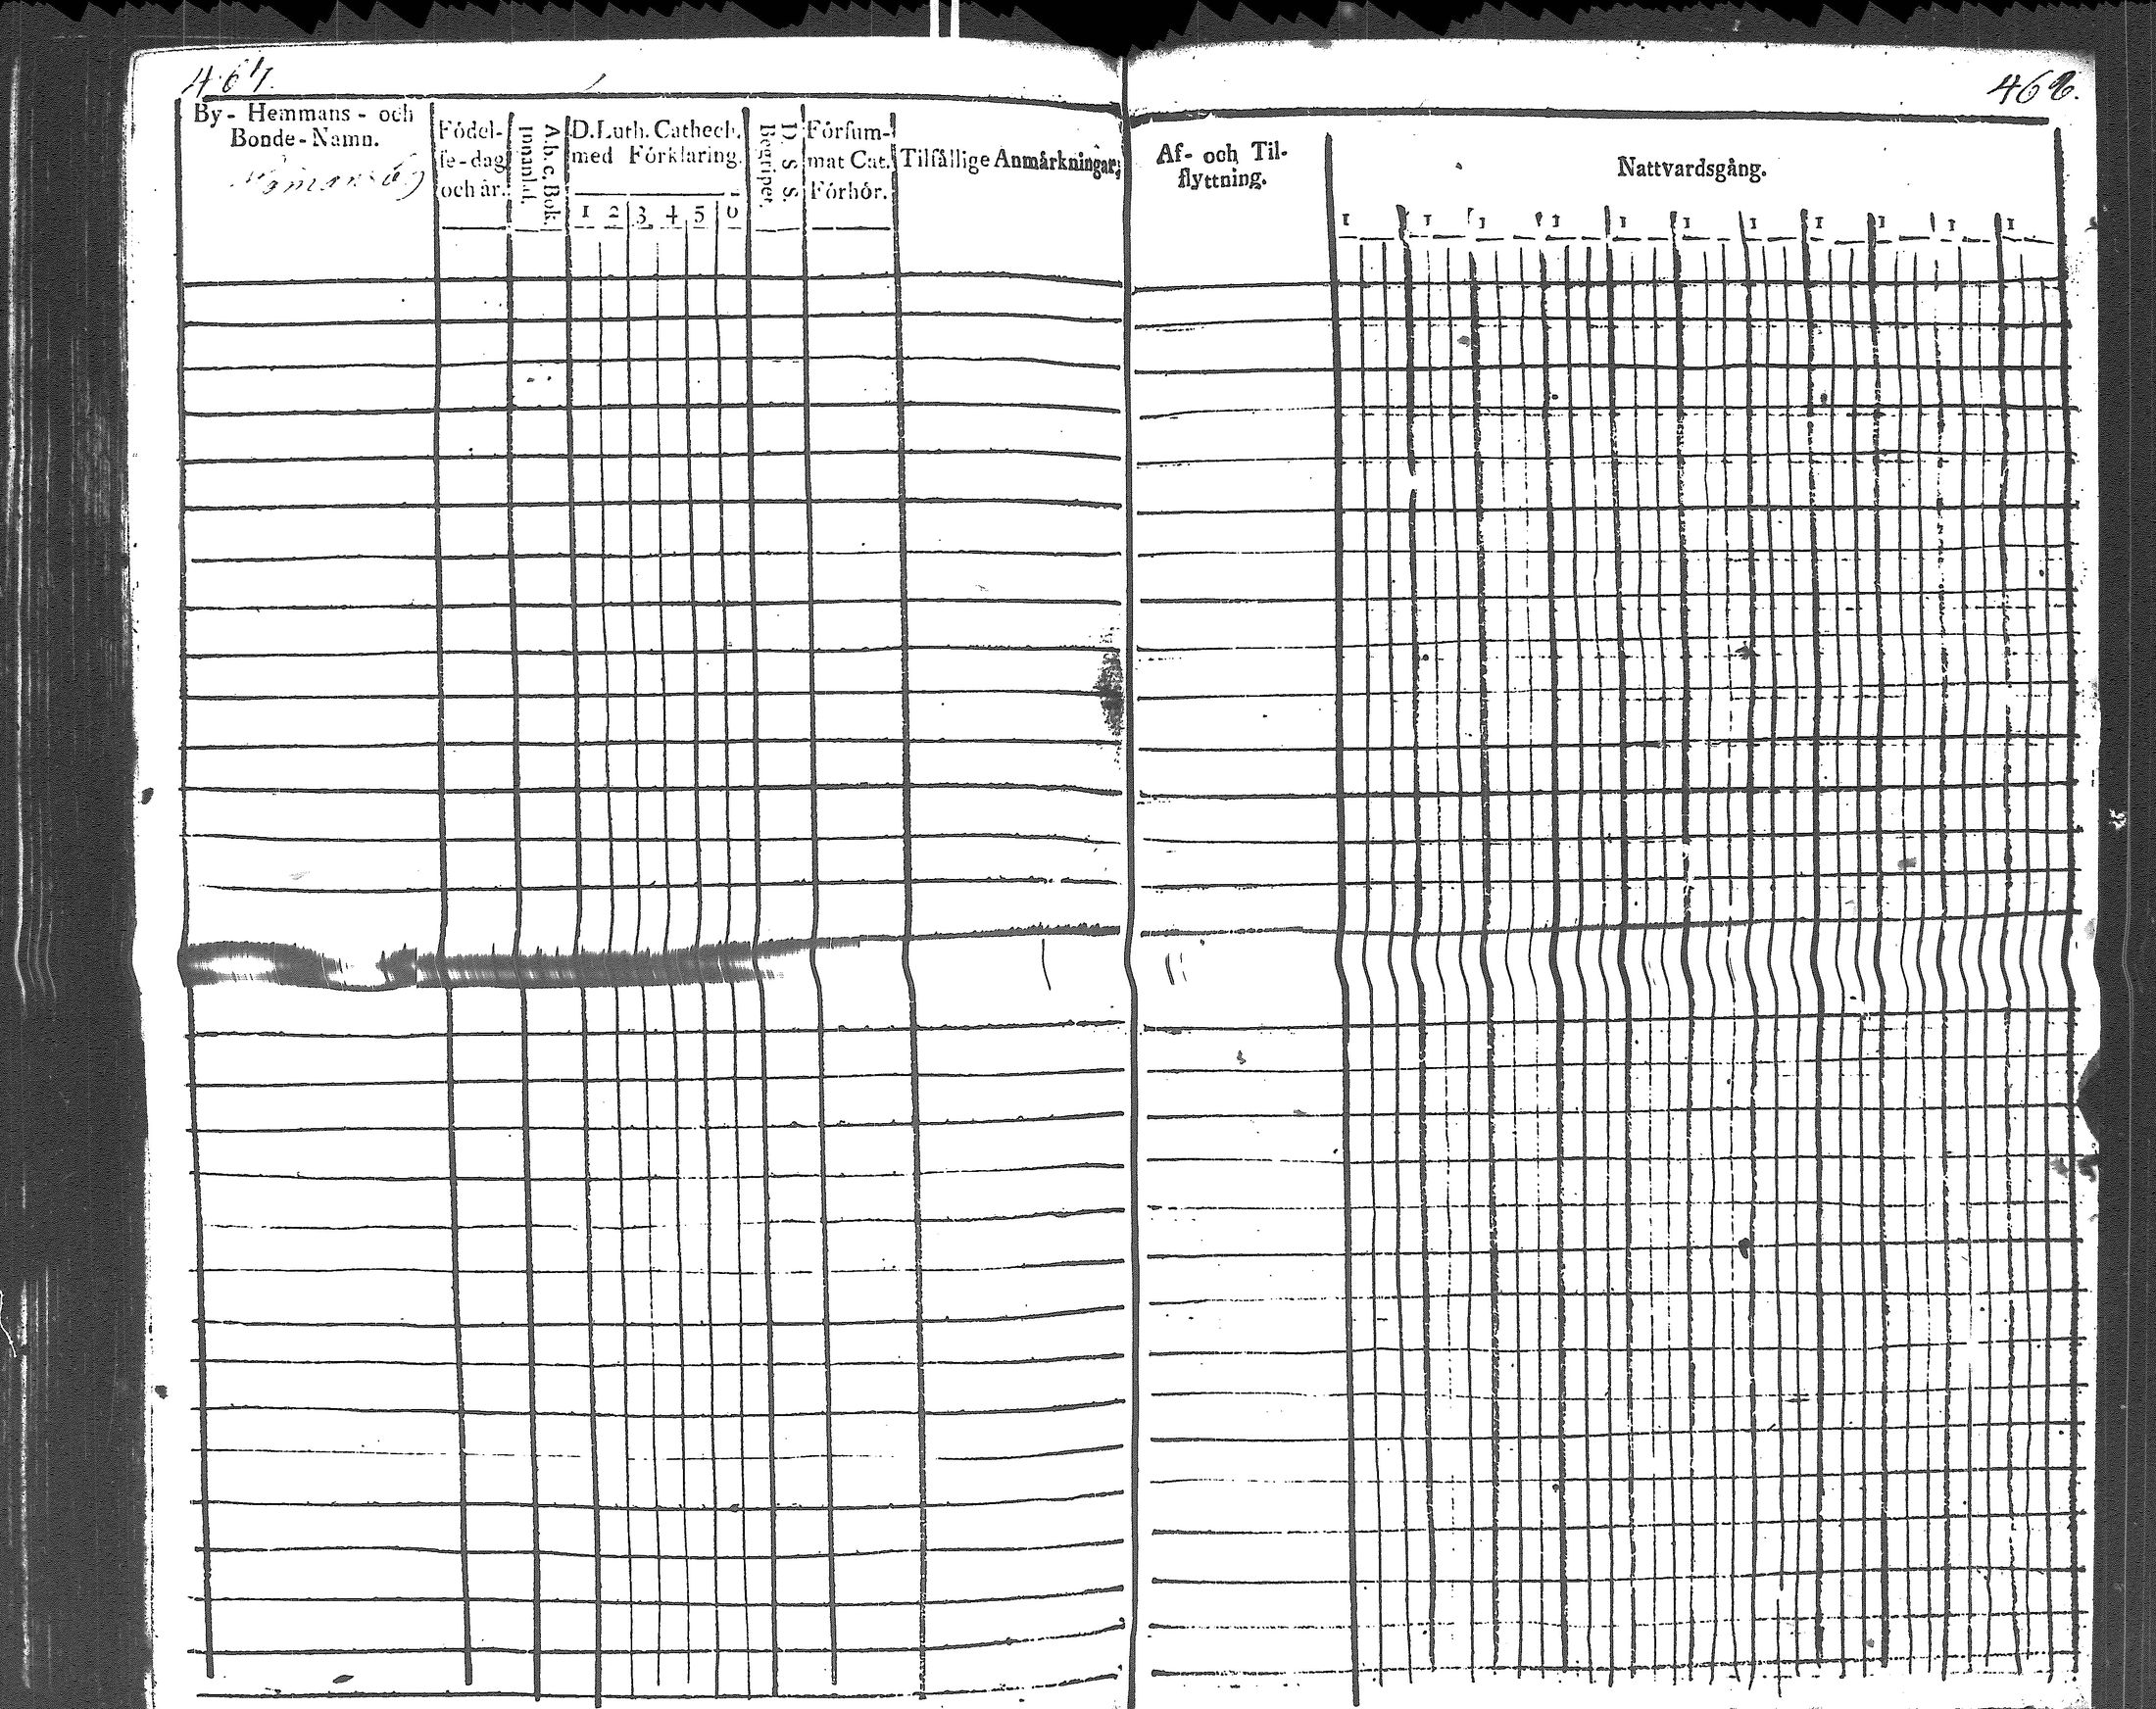 467.
By- Hemmans- och
Bonde-Namn.
Födel-
se-dag
och år.
Innanläs.
A.b.c. Bok.
D. Luth. Cathech.
med Förklaring.
1 2 3 4 5 6
D. S. S.
Begriper.
Försum-
mat Cat.
Förhör.
Tilfällige Anmärkningar.
468.
Af- och Til-
flyttning.
Nattvardsgång.
1 1 1 1 1 1 1 1 1 1 1